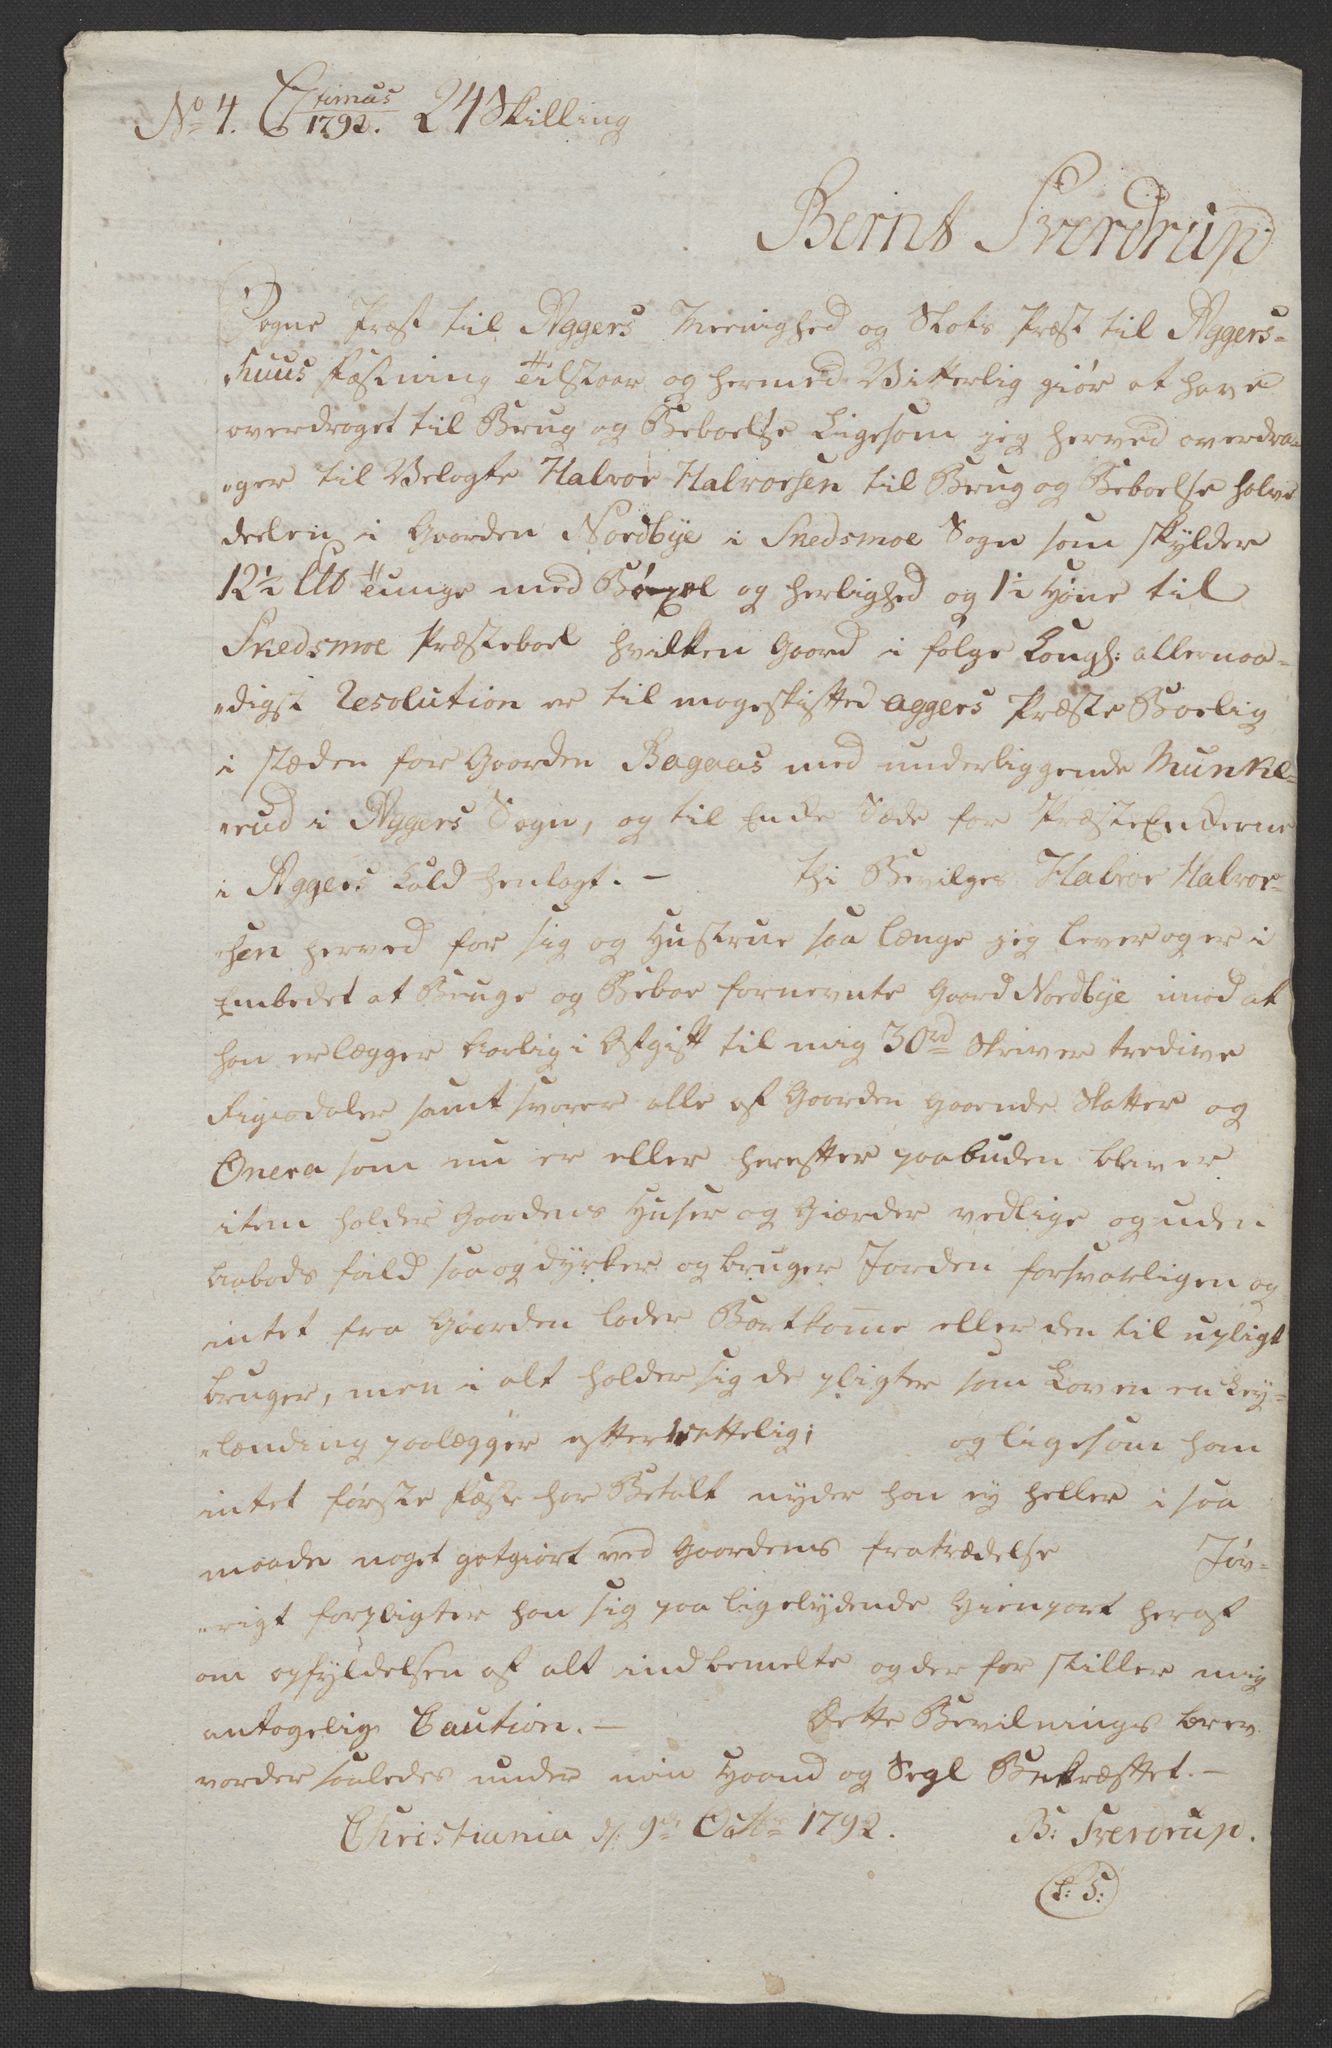 No 4. Ctimus 1792. 24 Skilling
Bernt Sverdrup
Sogne Præst til Aggers Meenighed og Slots Præst til Aggers-
huus Fæstning Tilstaar og hermed Vitterlig giør at have
overdraget til Brug og Beboelse Ligesom jeg herved overdra-
„ger til Velagte Halvor Halvorsen til Brug og Beboelse halve
deelen i Gaarden Nordbye i Skedsmoe Sogn som skylder
12½ L℔ Tunge med Böxel og herlighed og 1½ Høne til
Skedsmoe Præsteboel hvilken Gaard i følge Kongl: allernaa-
„digst Resolution er til mageskiftet Aggers Præste Boelig
i stæden for Gaarden Bagaas med underliggende Munke-
„rud i Aggers Sogn, og til Enke Sæde for PræsteEnkerne
i Aggers Kald henlagt. — thi Bevilges Halvor Halvor-
„sen herved for sig og Hustrue saa længe jeg lever og er i
Embedet at Bruge og Beboe fornevnte Gaard Nordbye imod at
han erlægger Aarlig i Afgift til mig 30rd Skriver tredive
Rigsdaler samt svarer alle af Gaarden gaaende Skatter og
Onera som nu er eller herefter paabuden bliver
item holder Gaardens Huser og Gierder vedlige og uden
Aabods fald saa og dyrker og bruger Jorden forsvarligen og
intet fra Gaarden lader Bortkom̄e eller den til upligt
bruger, men i alt holder sig de pligter som Loven en Ley-
„lænding paalegger efterrettelig; og ligesom han
intet første fæste har Betalt nyder han ey heller i saa
maade noget gotgiort ved Gaardens fratrædelse Jøv-
„rigt forpligter han sig paa ligelydende Gienpart heraf
om opfyldelsen af alt indbemelte og derfor stiller mig
antagelig Caution. — Dette Bevilnings brev
vorder saaledes under min Haand og Segl Bekræftet. —
Christiania d. 9de Octbr 1792. B: Sverdrup.
L: S: